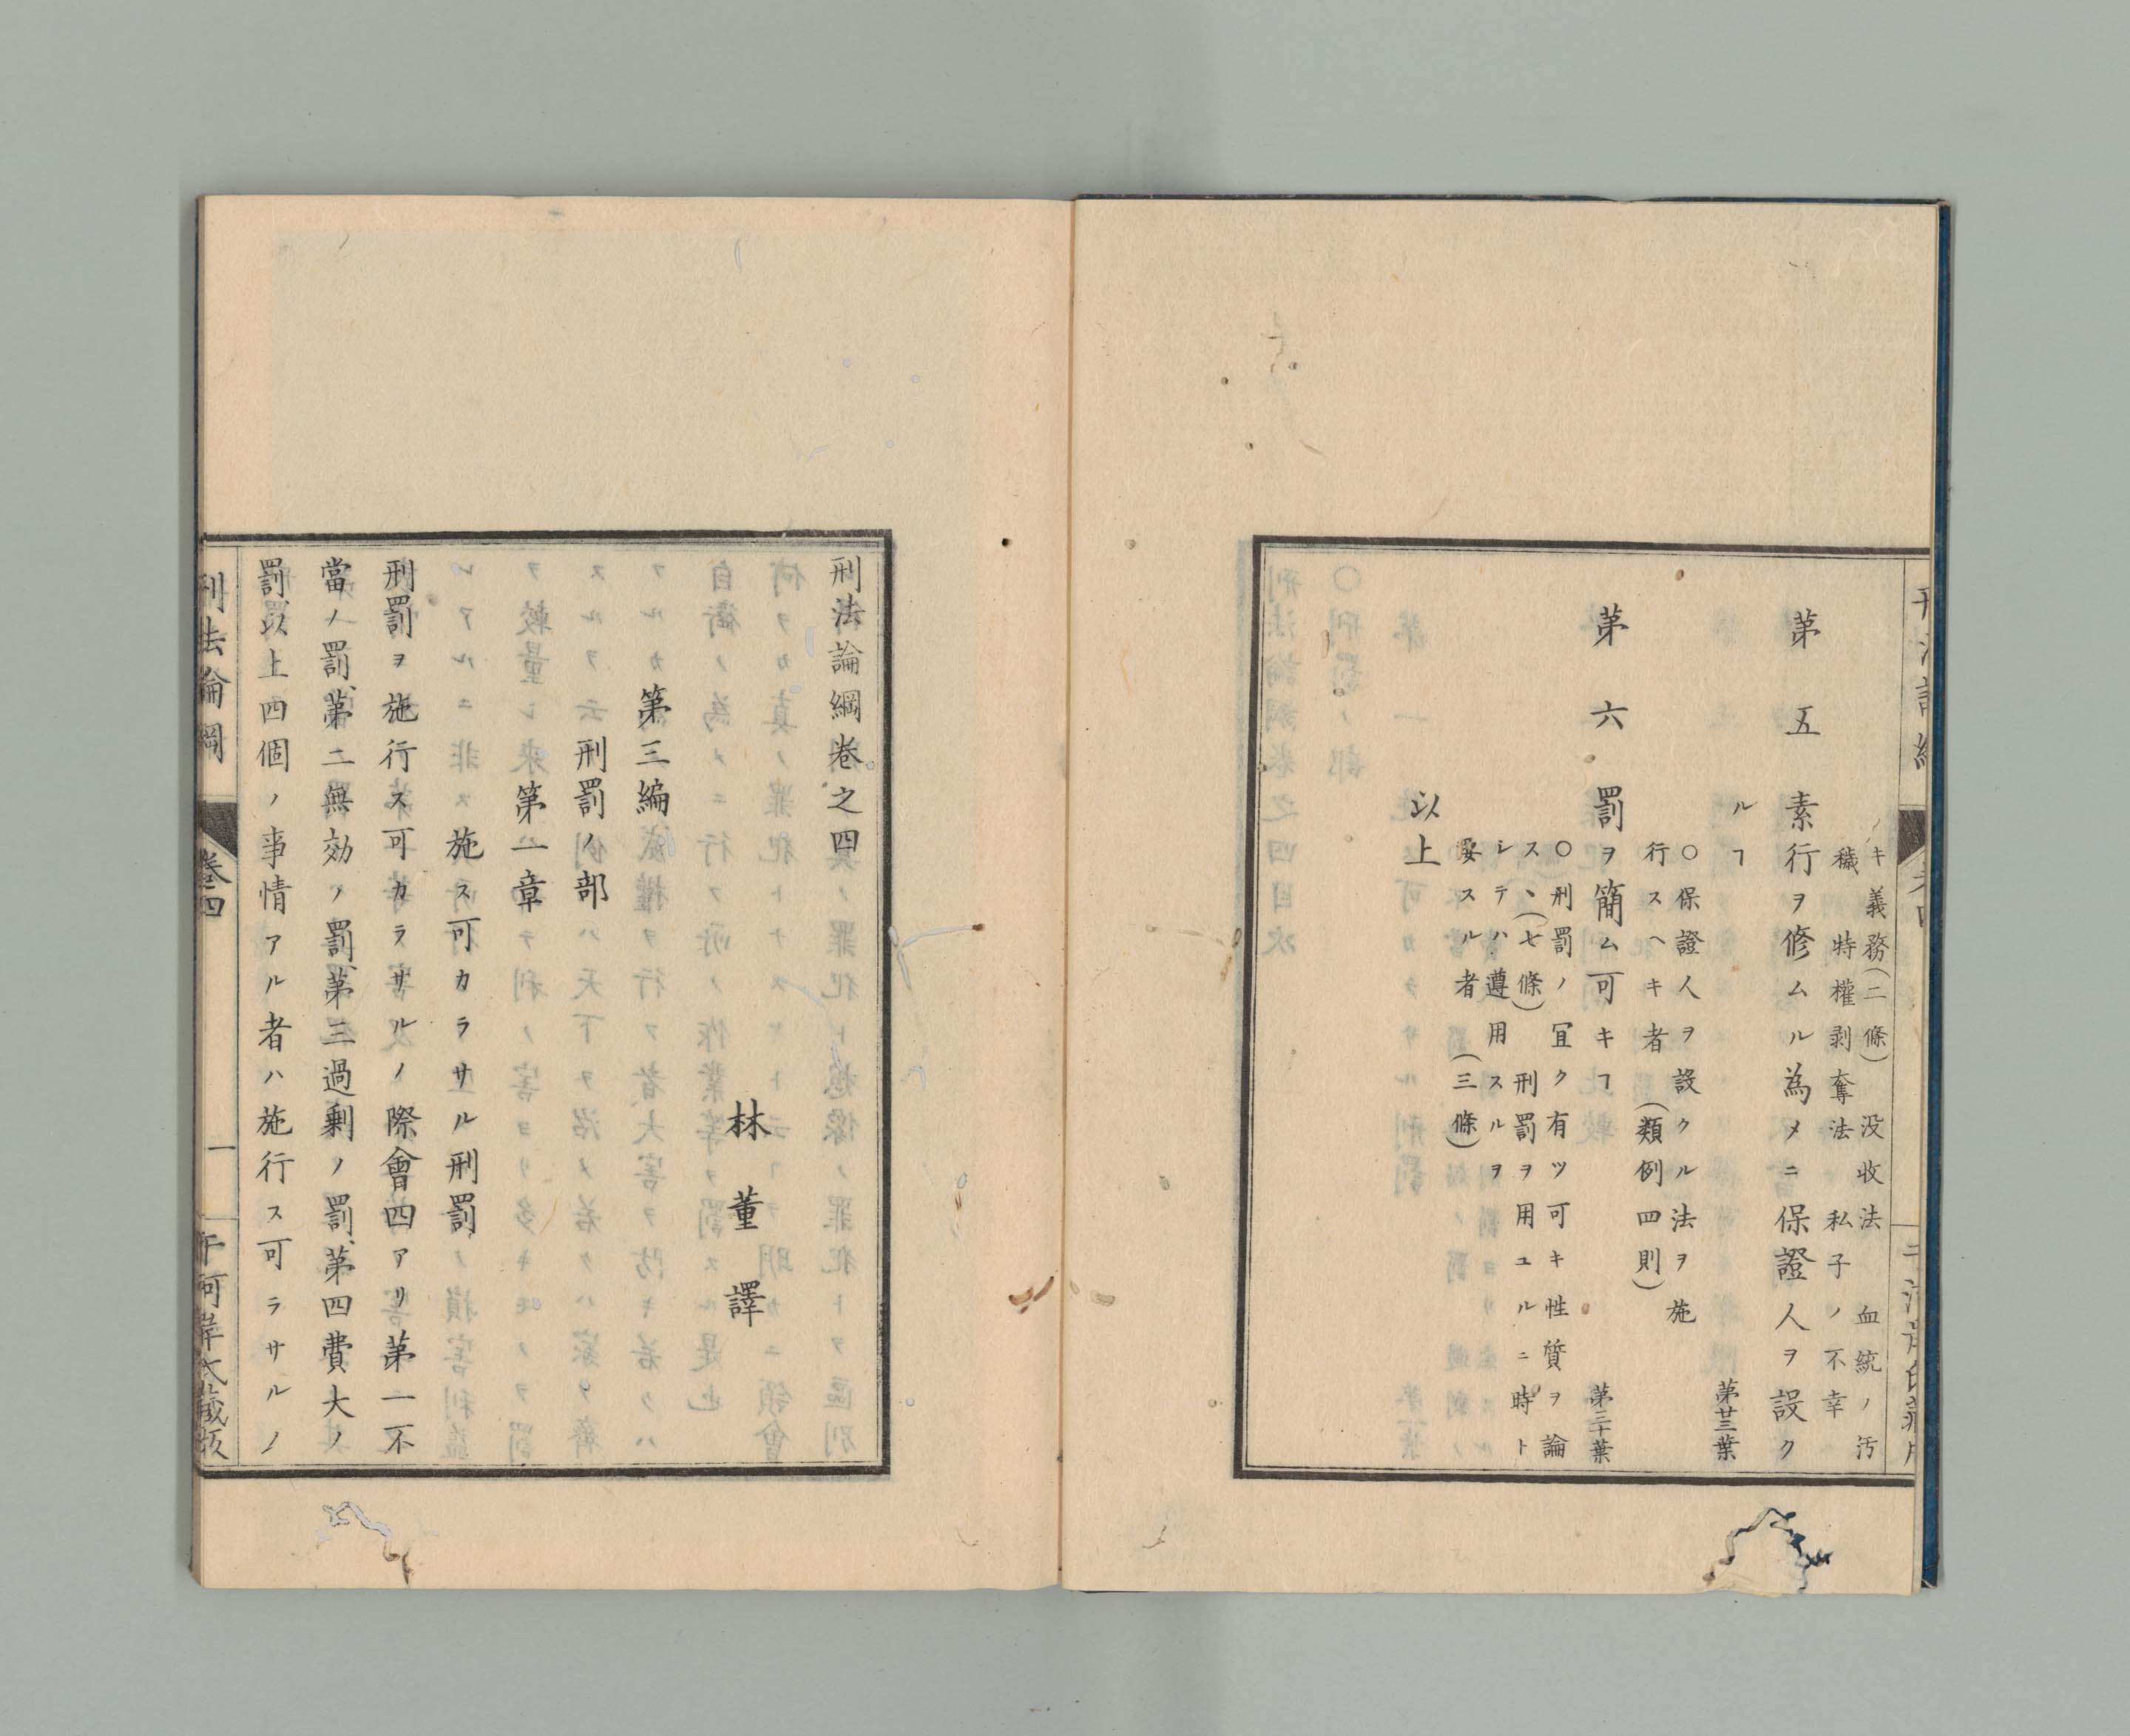 キ義務(二條)　没收法　血統ノ汚
穢　特權剥奪法　私子ノ不幸
第五　素行ヲ修ムル為メニ保證人ヲ設ク
ルヿ　第廿三葉
○保證人ヲ設クル法ヲ施
行スヘキ者(類例四則)
第六　罰ヲ簡ム可キヿ　第三十葉
○刑罰ノ冝ク有ツ可キ性質ヲ論
ス、(七條)　刑罰ヲ用ユルニ時ト
シテハ遵用スルヲ
要スル者(三條)
以上
刑法論綱卷之四
林董譯
第三編
刑罰ノ部
第一章
施ス可カラサル刑罰
刑罰ヲ施行ス可カラサルノ際會四アリ第一不
當ノ罰、第二無効ノ罰、第三過剰ノ罰、第四費大ノ
罰、以上四個ノ事情アル者ハ施行ス可ラサルノ
刑法論綱　卷四　一